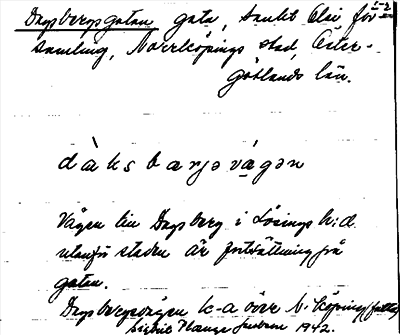 Dagsbergsgatan gata, Sankt Olai för
samling, Norrköpings stad, Öster-
götlands län.
dàksbærjəvägən
Vägen till Dagsberg i Lösings h:d
utanför staden är fortsättning på
gatan.
Dagsbergsvägen k-a över N:köping
1942.